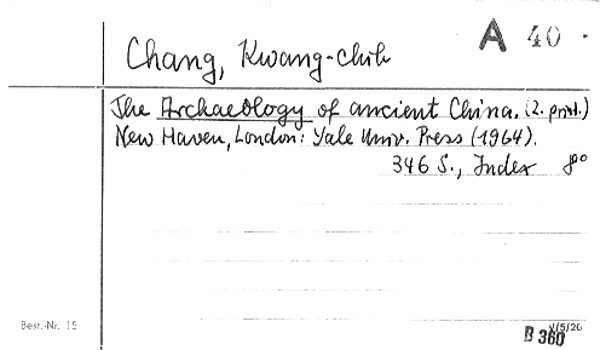 A 40 .
Chang, Kwang-chih
The Archaeology of ancient China. (2. print.)
New Haven, London: Yale Univ. Press (1964).
346 S., Index 8°
Best.-Nr. 15
B 360
V/5/20